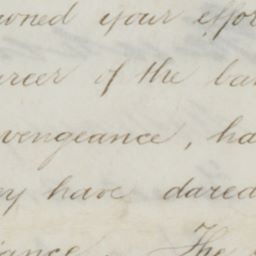 wned your effor
areer of the ba
vengeance, ha
ey have dared
iance. The